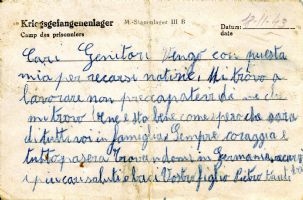 Kriegsgefangenenlager M-Stammlager III B
Camp des prisonniers
Datum:
date
Cari Genitori Vengo con questa
mia per recarvi notizie, Mi trovo a
lavorare non preocupatevi di me che
mi trovo bene e sto bene come spero che sara
di tutti voi in famiglia Sempre coraggio e
tutto pasera Trovandomi in Germania,
i più cari saluti e baci Vostro figlio Pietro